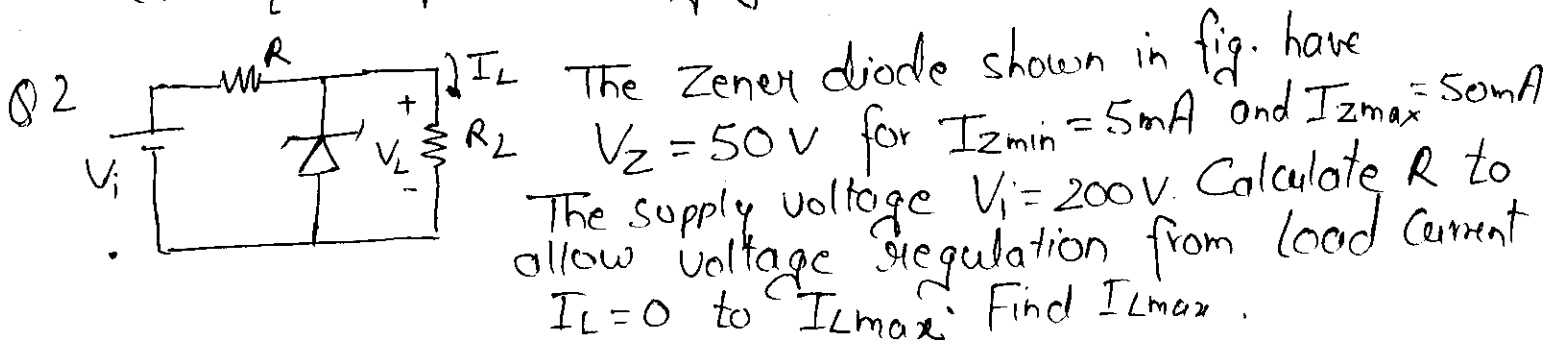 Q2 The Zener diode shown in fig. have
V_Z = 50 V for I_Zmin = 5mA and I_Zmax = 50mA
The supply voltage V_i = 200V. Calculate R to
allow voltage regulation from load current
I_L = 0 to I_Lmax. Find I_Lmax.
R
I_L
+
V_i
V_L
R_L
-